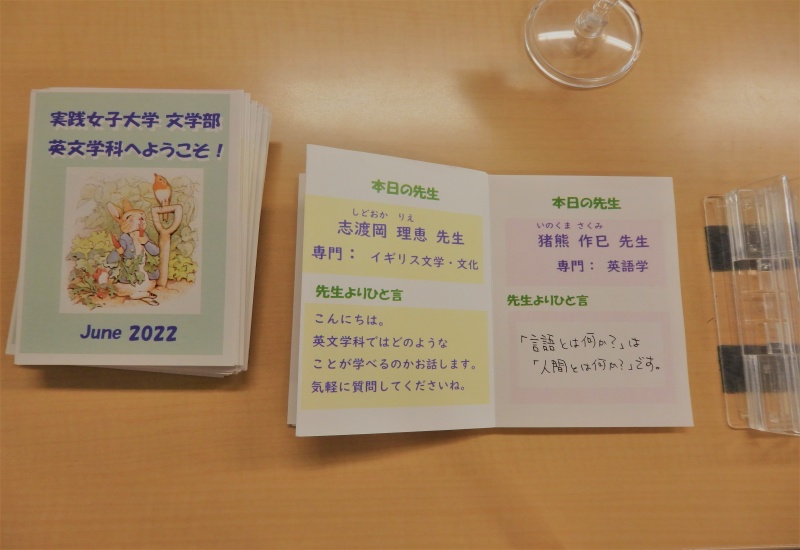 実践女子大学 文学部
英文学科へようこそ！
June 2022
本日の先生
しどおか りえ
志渡岡 理恵 先生
専門： イギリス文学・文化
先生よりひと言
こんにちは。
英文学科ではどのような
ことが学べるのかお話します。
気軽に質問してくださいね。
本日の先生
いのくま さくみ
猪熊 作巳 先生
専門： 英語学
先生よりひと言
「言語とは何か?」は
「人間とは何か?」です。